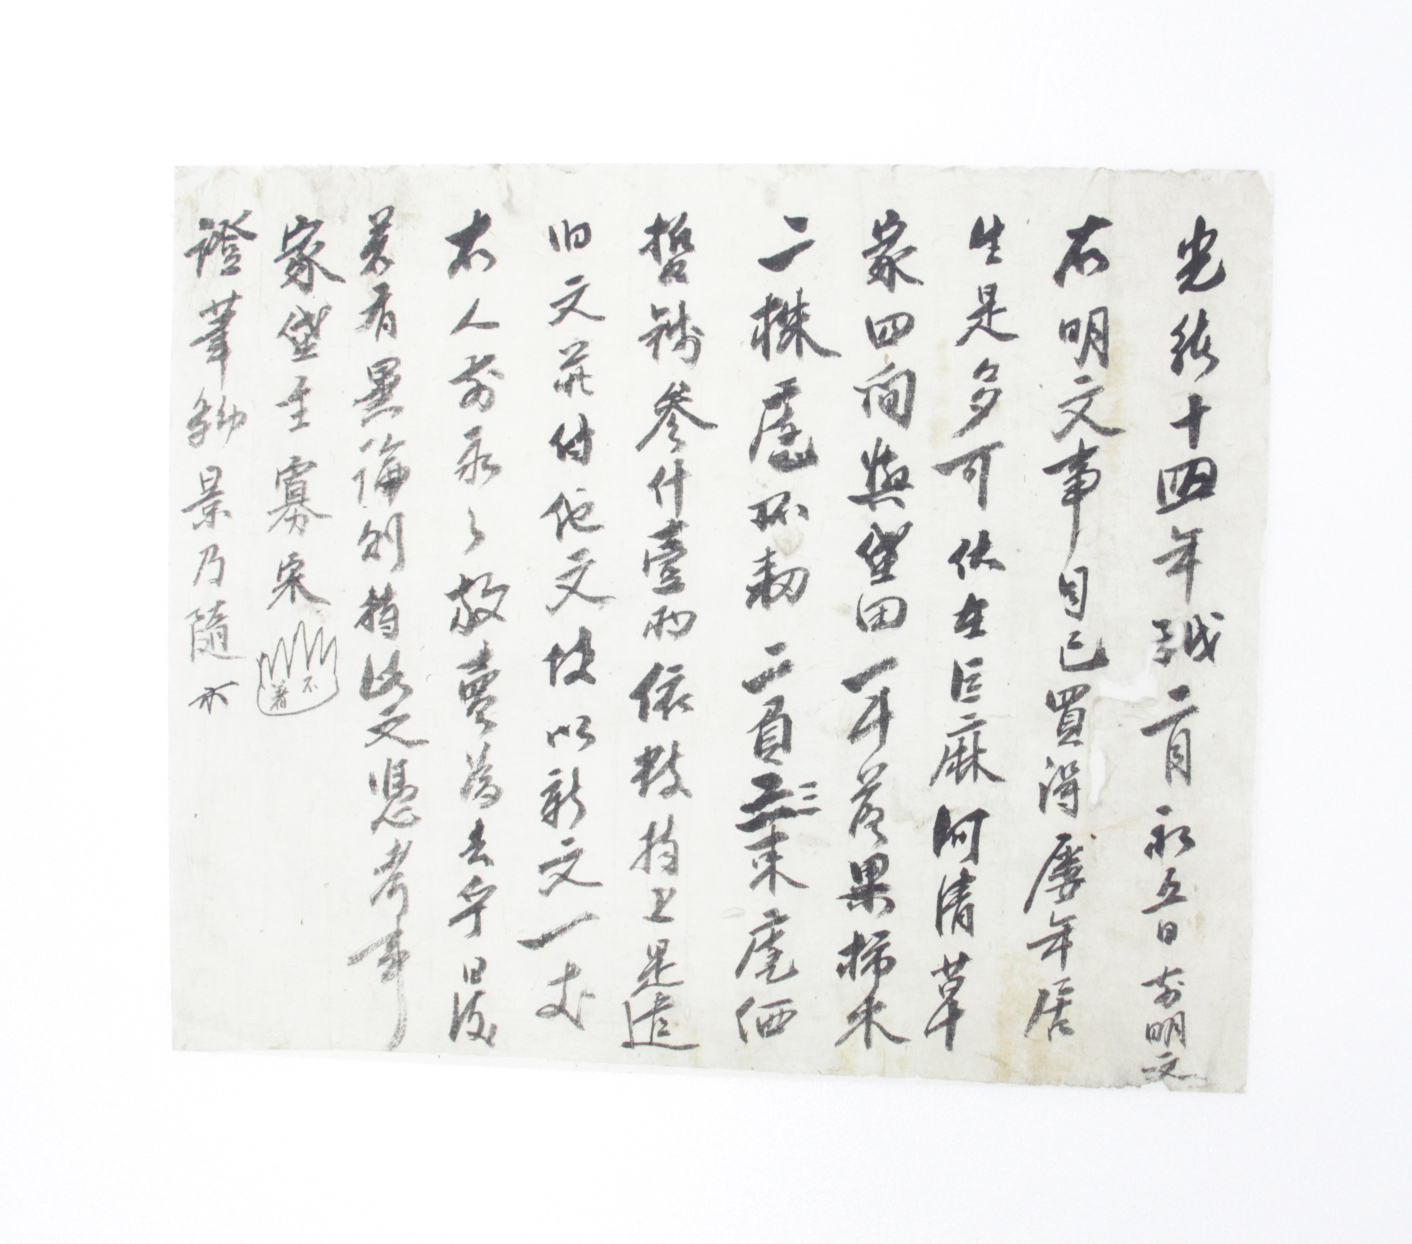 光緒十四年戊子二月初五日前明文
右明文事自己買得屢年居
生是多可伏在巨麻阿淸草
家四間與垈田一斗落果柿木
二株㐣卜數二負三束㐣價
折錢參什壹兩依數捧上是遣
旧文幷付他文故以新文一丈
右人前永永放賣爲去乎日後
若有異論則持此文憑考事
家垈主寡宋 不着
證筆幼景乃隨 不